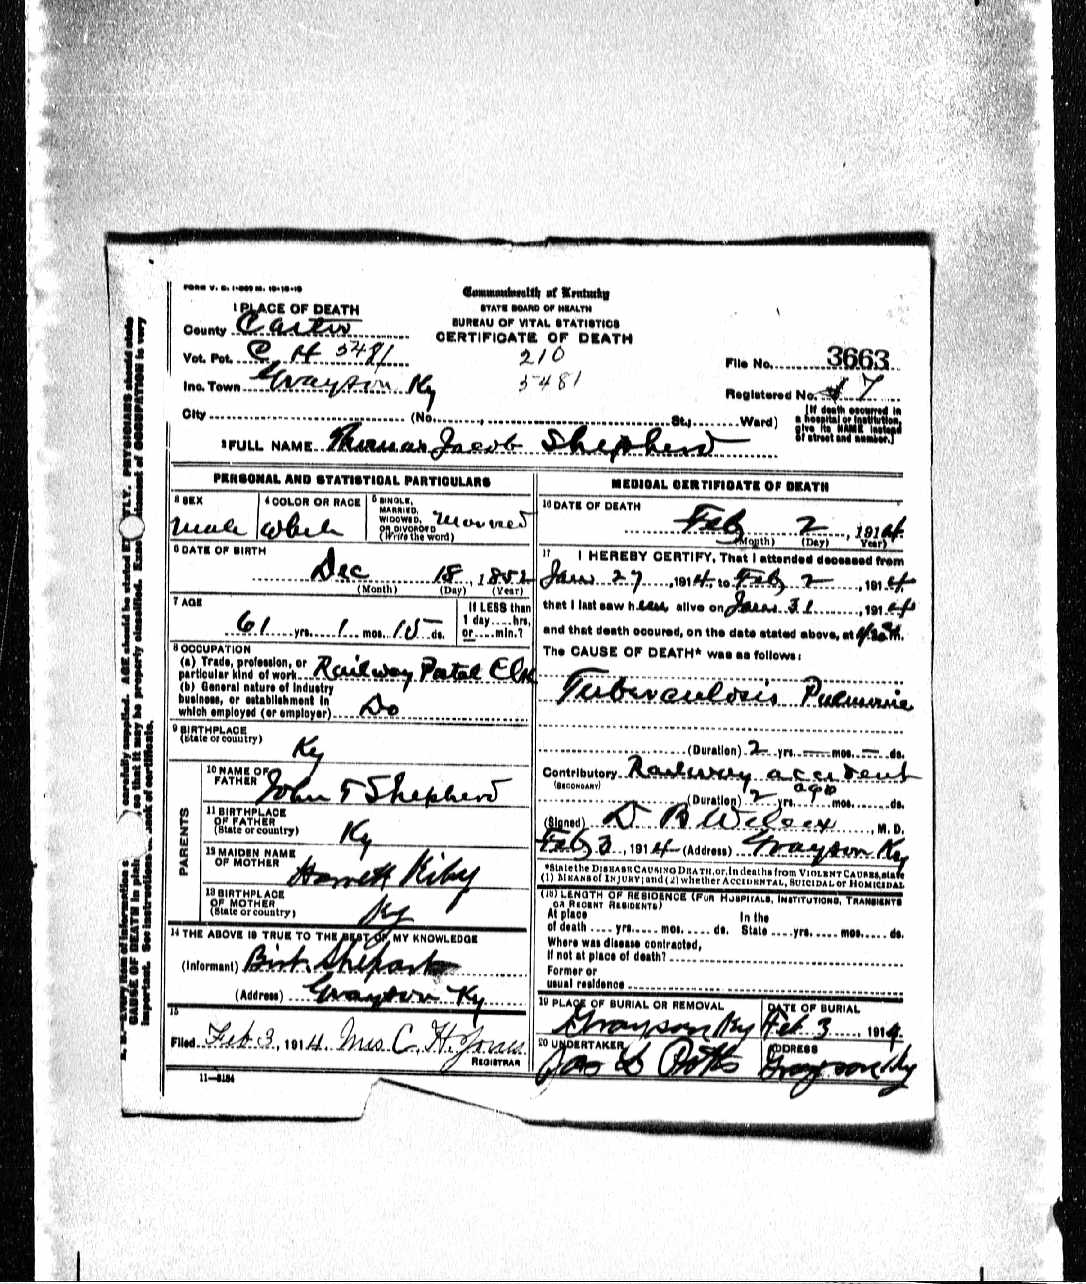 FORM V. S. 1-
Commonwealth of Kentucky
STATE BOARD OF HEALTH
BUREAU OF VITAL STATISTICS
CERTIFICATE OF DEATH
210
5481
1 PLACE OF DEATH
County Carter
Vot. Pct. C H 5481
Inc. Town Grayson Ky
City (No. , St., Ward)
File No. 3663
Registered No. 7
[If death occurred in
a hospital or institution,
give its NAME instead
of street and number.]
2 FULL NAME Thomas Jacob Shepherd
PERSONAL AND STATISTICAL PARTICULARS
3 SEX
male
4 COLOR OR RACE
White
5 SINGLE,
MARRIED,
WIDOWED,
OR DIVORCED
(Write the word)
Married
6 DATE OF BIRTH
Dec 18, 1852
(Month) (Day) (Year)
7 AGE
61 yrs. 1 mos. 15 ds.
If LESS than
1 day hrs.
or min.?
8 OCCUPATION
(a) Trade, profession, or
particular kind of work Railway Postal Clk
(b) General nature of industry
business, or establishment in
which employed (or employer) Do
9 BIRTHPLACE
(State or country)
Ky
PARENTS
10 NAME OF
FATHER John T Shepherd
11 BIRTHPLACE
OF FATHER
(State or country) Ky
12 MAIDEN NAME
OF MOTHER
13 BIRTHPLACE
OF MOTHER
(State or country) Ky
14 THE ABOVE IS TRUE TO THE BEST OF MY KNOWLEDGE
(Informant) Birt
(Address) Grayson Ky
15
Filed Feb 3, 1914 Mrs C. H. Jones
REGISTRAR
11-3184
MEDICAL CERTIFICATE OF DEATH
16 DATE OF DEATH
Feb 2, 1914
(Month) (Day) (Year)
17 I HEREBY CERTIFY, That I attended deceased from
Jan 27, 1914, to Feb 2, 1914
that I last saw him alive on Jan 31, 1914
and that death occured, on the date stated above, at m.
The CAUSE OF DEATH* was as follows:
Tuberculosis
(Duration) 2 yrs. — mos. — ds.
Contributory Railway accident
(SECONDARY) ago
(Duration) 2 yrs. mos. ds.
(Signed) D B Wilcox, M. D.
Feb 3, 1914 (Address) Grayson Ky
*State the DISEASE CAUSING DEATH, or, in deaths from VIOLENT CAUSES, state
(1) MEANS OF INJURY; and (2) whether ACCIDENTAL, SUICIDAL or HOMICIDAL
(18) LENGTH OF RESIDENCE (FOR HOSPITALS, INSTITUTIONS, TRANSIENTS
OR RECENT RESIDENTS)
At place In the
of death yrs. mos. ds. State yrs. mos. ds.
Where was disease contracted,
if not at place of death?
Former or
usual residence
19 PLACE OF BURIAL OR REMOVAL
Grayson Ky
DATE OF BURIAL
Feb 3, 1914
20 UNDERTAKER
Jas Potts
ADDRESS
Grayson Ky